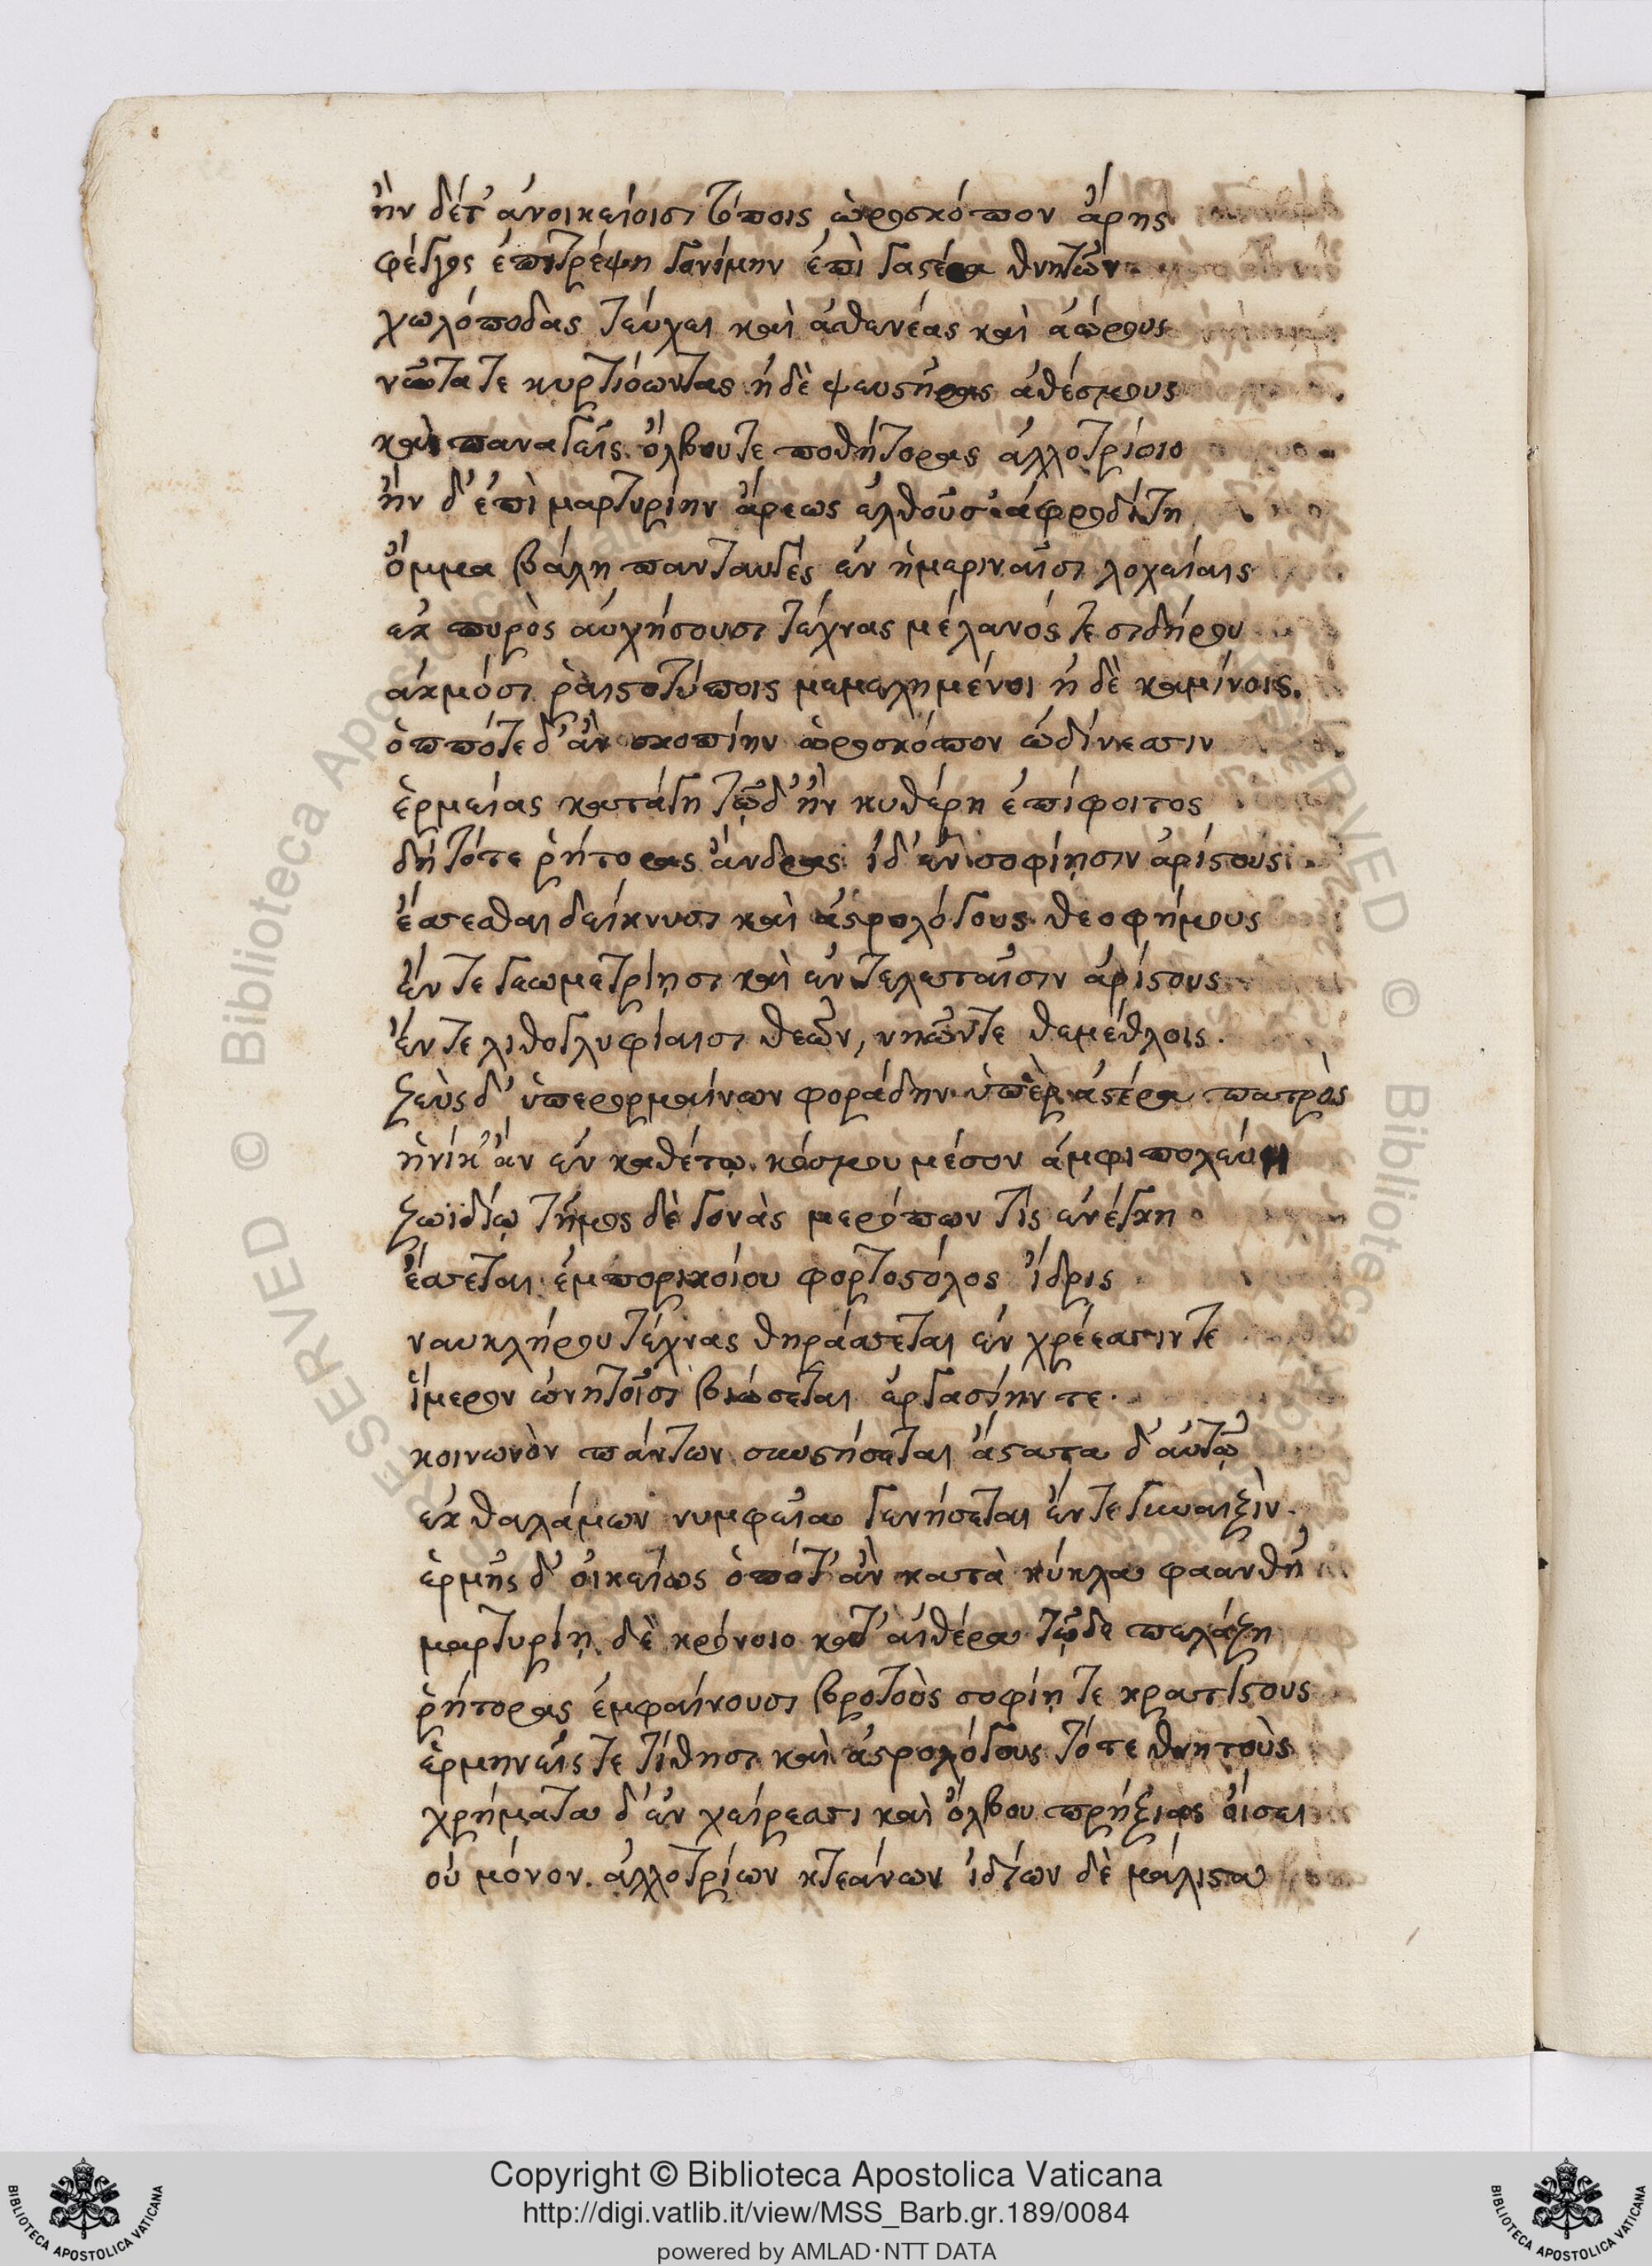 ἢν δέτ' ἀνοικείοισι τύποις ὡροσκόπον ἄρης
φέγγος ἐπιτρέψη γονίμην ἐπὶ γαστέρα θνητῶν
χωλόποδας τεύχει καὶ ἀσθενέας καὶ ἀώρους
νῶτα τε κυρτιόωντας ἠδὲ ψευστῆρας ἀθέσμους
καὶ παναγεῖς ὄλβου τε ποθήτορας ἀλλοτρίοιο
ἢν δ' ἐπὶ μαρτυρίην ἄρεως ἐλθοῦσ' ἀφροδίτη
ὄμμα βάλη πανταυγὲς ἐν ἡμεριναῖσι λοχείαις
ἐκ πυρὸς αὐχήσουσι τέχνας μέλανός τε σιδήρου
ἀκμόσι ῥαιστοτύποις μεμελημένοι ἠδὲ καμίνοις.
ὁππότε δ' ἂν σκοπίην ὡροσκόπον ὠδίνεσσιν
ἑρμείας κατάγη τῷδ' ἢν κυθέρη ἐπίφοιτος
δὴ τότε ῥήτορας ἄνδρας ἰδ' ἐν σοφίῃσιν ἀρίστους
ἔσσεσθαι δείκνυσι καὶ ἀστρολόγους θεοφήμους
ἔν τε γεωμετρίῃσι καὶ ἐν τελεταῖσιν ἀρίστους
ἔν τε λιθογλυφίαισι θεῶν, νηῶν τε θεμέθλοις.
ζεὺς δ' ὑπερορμαίνων φοράδην ὑπὲρ ἀστέρα πατρὸς
ἡνίκ' ἂν ἐν καθέτῳ κόσμου μέσον ἀμφιπολεύη
ζωϊδίῳ τῆμος δὲ γονὰς μερόπων τὶς ἐνέγκη
ἔσσεται ἐμπορικοίου φορτοστόλος ἴδρις
ναυκλήρου τέχνας θηράσσεται ἐν χρέεσσιν τε
ἵμερον ὠνητοῖσι βιώσεται ἐργασίην τε.
κοινωνὸν πάντων συστήσεται ἄστατα δ' αὐτῷ
ἐκ θαλάμων νυμφεῖα γενήσεται ἔν τε γυναιξὶν.
ἑρμῆς δ' οἰκείως ὁπότ' ἂν κατὰ κύκλα φαανθῆ
μαρτυρίῃ δὲ κρόνοιο κατ' αἰθέρα τῷδε πελάζη
ῥήτορας ἐμφαίνουσι βροτοὺς σοφίῃ τε κρατίστους
ἑρμηνεῖς τε τίθησι καὶ ἀστρολόγους τότε θνητοὺς
χρήματα δ' ἐν χείρεσσι καὶ ὄλβου πρήξιας οἴσει
οὐ μόνον ἀλλοτρίων κτεάνων ἰδίων δὲ μάλιστα
Copyright © Biblioteca Apostolica Vaticana
http://digi.vatlib.it/view/MSS_Barb.gr.189/0084
powered by AMLAD·NTT DATA
BIBLIOTECA APOSTOLICA VATICANA
BIBLIOTECA APOSTOLICA VATICANA